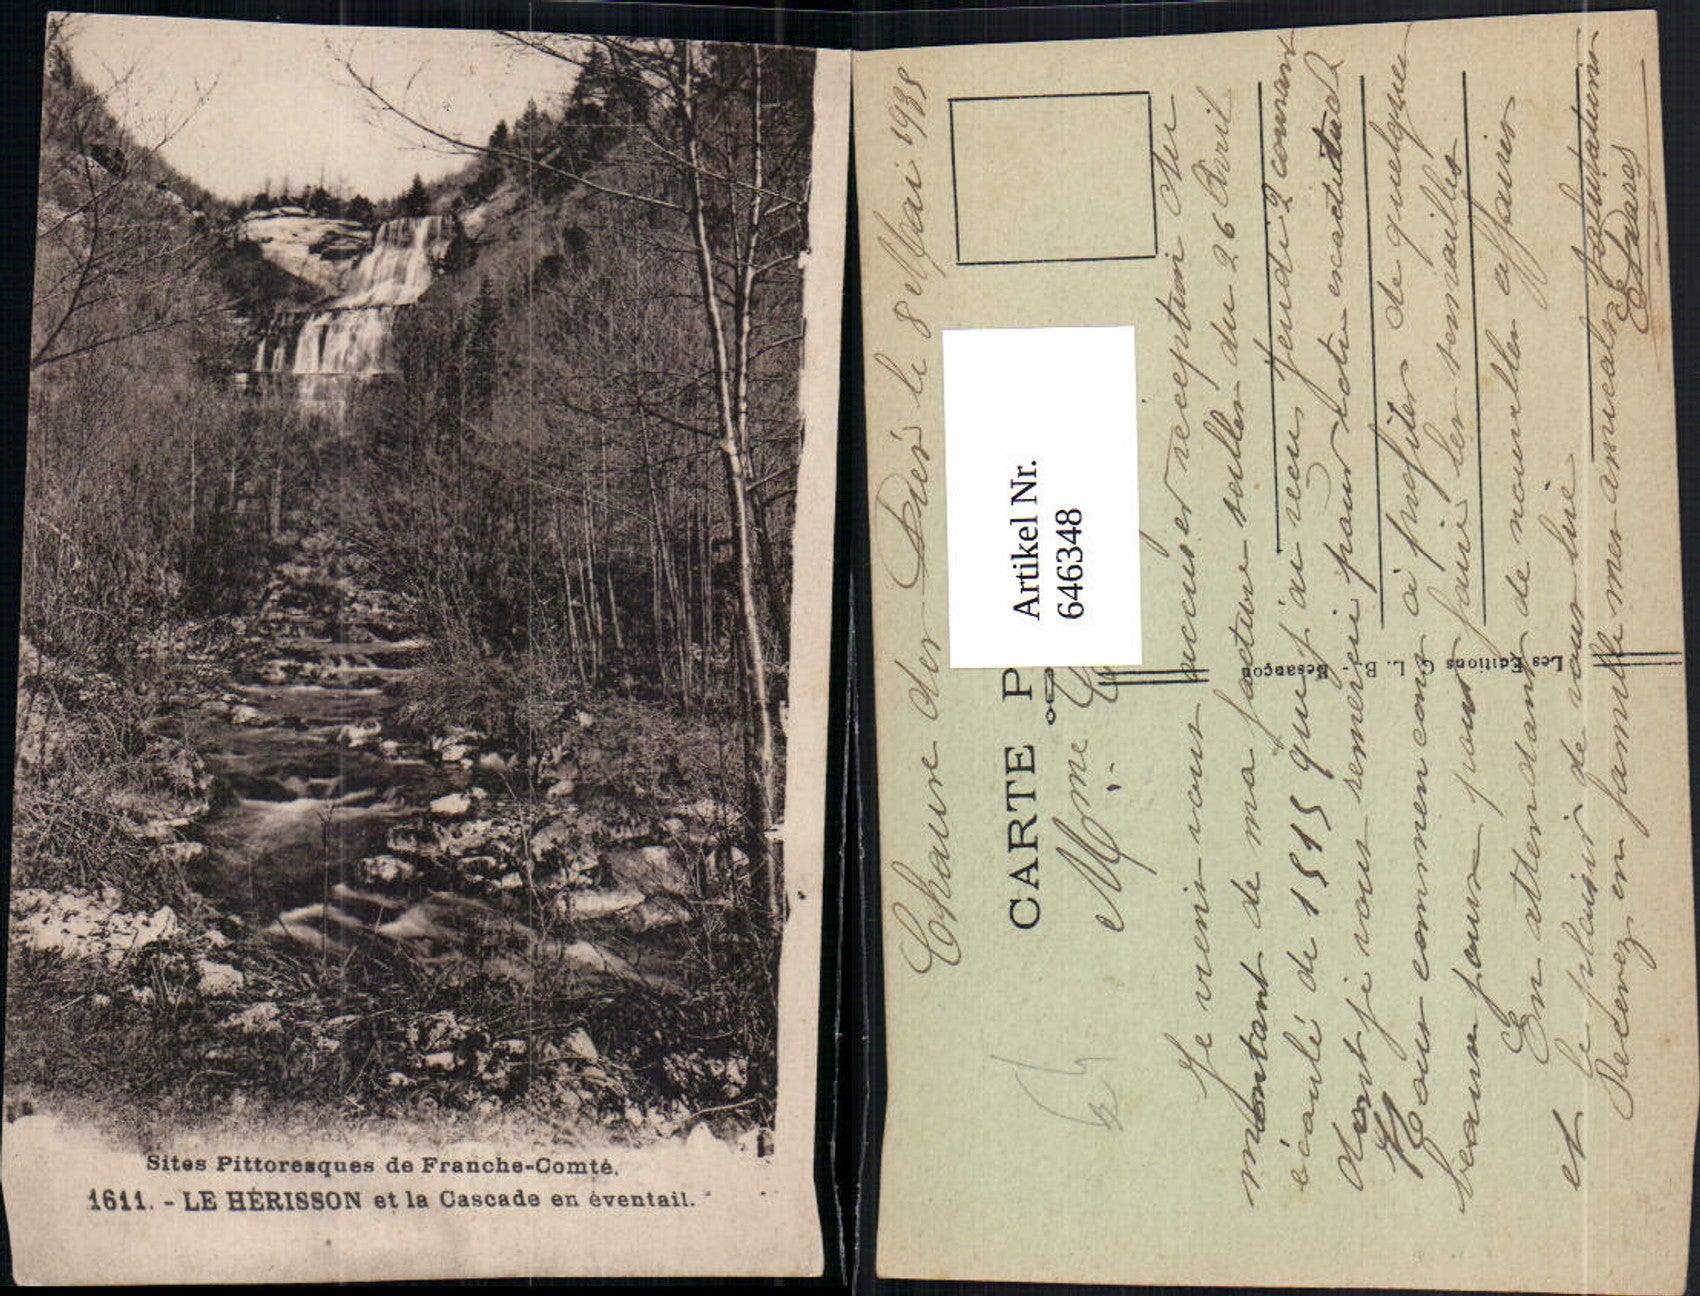 Sites Pittoresques de Franche-Comté.
1611. - LE HÉRISSON et la Cascade en éventail.
le 8 Mai 1935
CARTE P
Artikel Nr.
6463348
Mme
Je viens vous accuser reception du
montant de ma facture soldée du 26 Avril
écoulé de 1515 que j'ai reçu Jeudi 2 courant
dont je vous remercie pour votre exactitude
Nous commençons à profiter de quelques
beaux jours pour faire les semailles
En attendant de nouvelles affaires
et le plaisir de vous lire
Recevez en famille mes amicales salutations
Les Editions C. L. B., Besançon